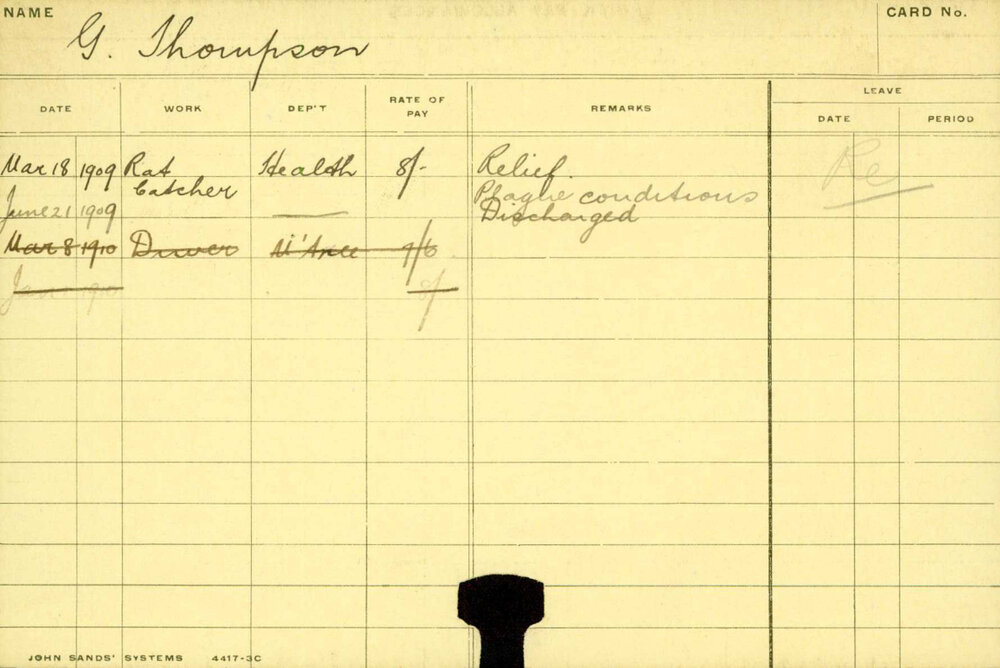 NAME
CARD No.
G. Thompson
DATE WORK DEP'T RATE OF PAY REMARKS LEAVE
DATE PERIOD
Mar 18 1909 Rat Catcher Health 8/- Relief.
Plague conditions
June 21 1909 Discharged
Mar 8 1910 Driver M'ance 9/6
1910 8/
Re
JOHN SANDS' SYSTEMS 4417-3C